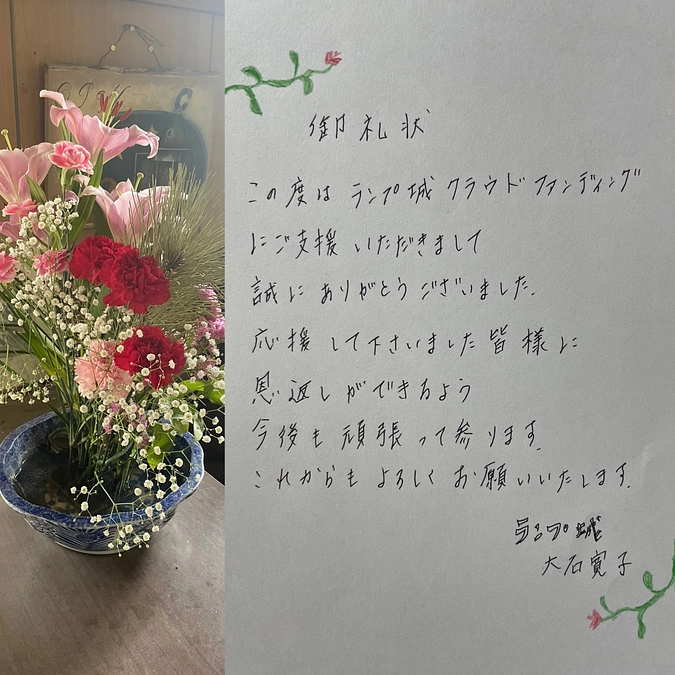 御礼状
この度は ランプ城 クラウドファンディング
にご支援いただきまして
誠にありがとうございました.
応援して下さいました皆様に
恩返しができるよう
今後も頑張って参ります.
これからもよろしくお願いいたします.
ランプ城
大石寛子